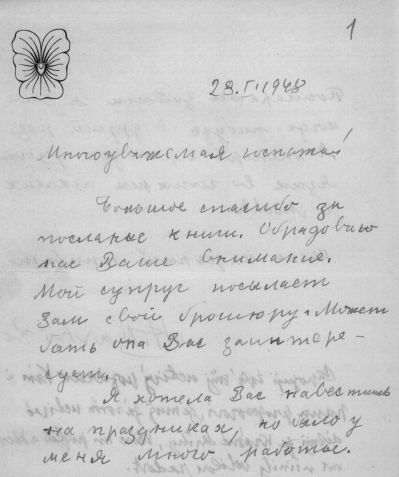 1
28.I.1948
Многоуважемая госпожа!
Большое спасибо за
посланые книги. Обрадовало
нас Ваше внимание.
Мой супруг посылает
Вам свой брошюру. Может
бать она Вас заинтере-
сует.
Я хотела Вас навестить
на праздниках, но бало у
меня много работы.